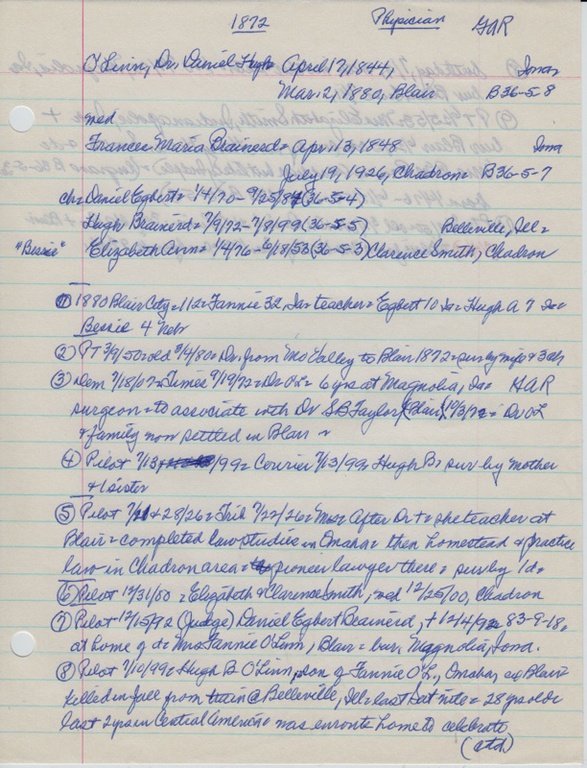 1872 Physician GAR
O'Linn, Dr. Daniel Hugh April 17, 1844, Iowa
Mar. 2, 1880, Blair B36-5-8
med
Frances Maria Brainerd = Apr. 13, 1848 Iowa
July 19, 1926, Chadron = B36-5-7
ch = Daniel Egbert = 1/4/70 - 9/25/84 (36-5-4)
Hugh Brainerd = 7/9/72 - 7/8/99 (36-5-5) Belleville, Ill =
"Bessie" Elizabeth Ann = 1/4/76 - 6/18/53 (36-5-3) Clarence Smith, Chadron
① 1880 Blair City = 112 = Fannie 32, Ia = teacher = Egbert 10 Ia = Hugh A 7 Ia =
Bessie 4 Neb
② PT 3/9/50 = 3/4/80 = Dr. from Mo Valley to Blair 1872 = surv by wife & 3 ch
③ Dem 7/18/07 = Times 9/19/72 = Dr O'L = 6 yrs at Magnolia, Ia = GAR
surgeon = to associate with Dr SB Taylor (Blair) 10/3/72 = Dr O'L
& family now settled in Blair =
④ Pilot 7/13/99 = Courier 7/13/99 = Hugh B = surv by mother
& 1 sister
⑤ Pilot & 28/26 = Trib 7/22/26 = Mrs = After Dr + = she teacher at
Blair = completed law studies in Omaha = then homestead & practice
law in Chadron area = pioneer lawyer there = surv by 1 d =
⑥ Pilot 12/31/00 = Elizabeth = Clarence Smith, med 12/25/00, Chadron
⑦ Pilot 12/15/92 (Judge) Daniel Egbert Brainerd, + 12/4/92 83-9-18,
at home of d = Mrs Fannie O'Linn, Blair = bur. Magnolia, Iowa.
⑧ Pilot 7/10/99 = Hugh B O'Linn, son of Fannie O'L, Omaha, Blair
killed in fall from train @ Belleville, Ill = last Sat nite = 28 yrs old =
last 2 yrs in Central America = was enroute home to celebrate